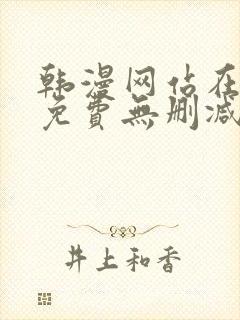 韩漫网站在
免費無删减
井上和香